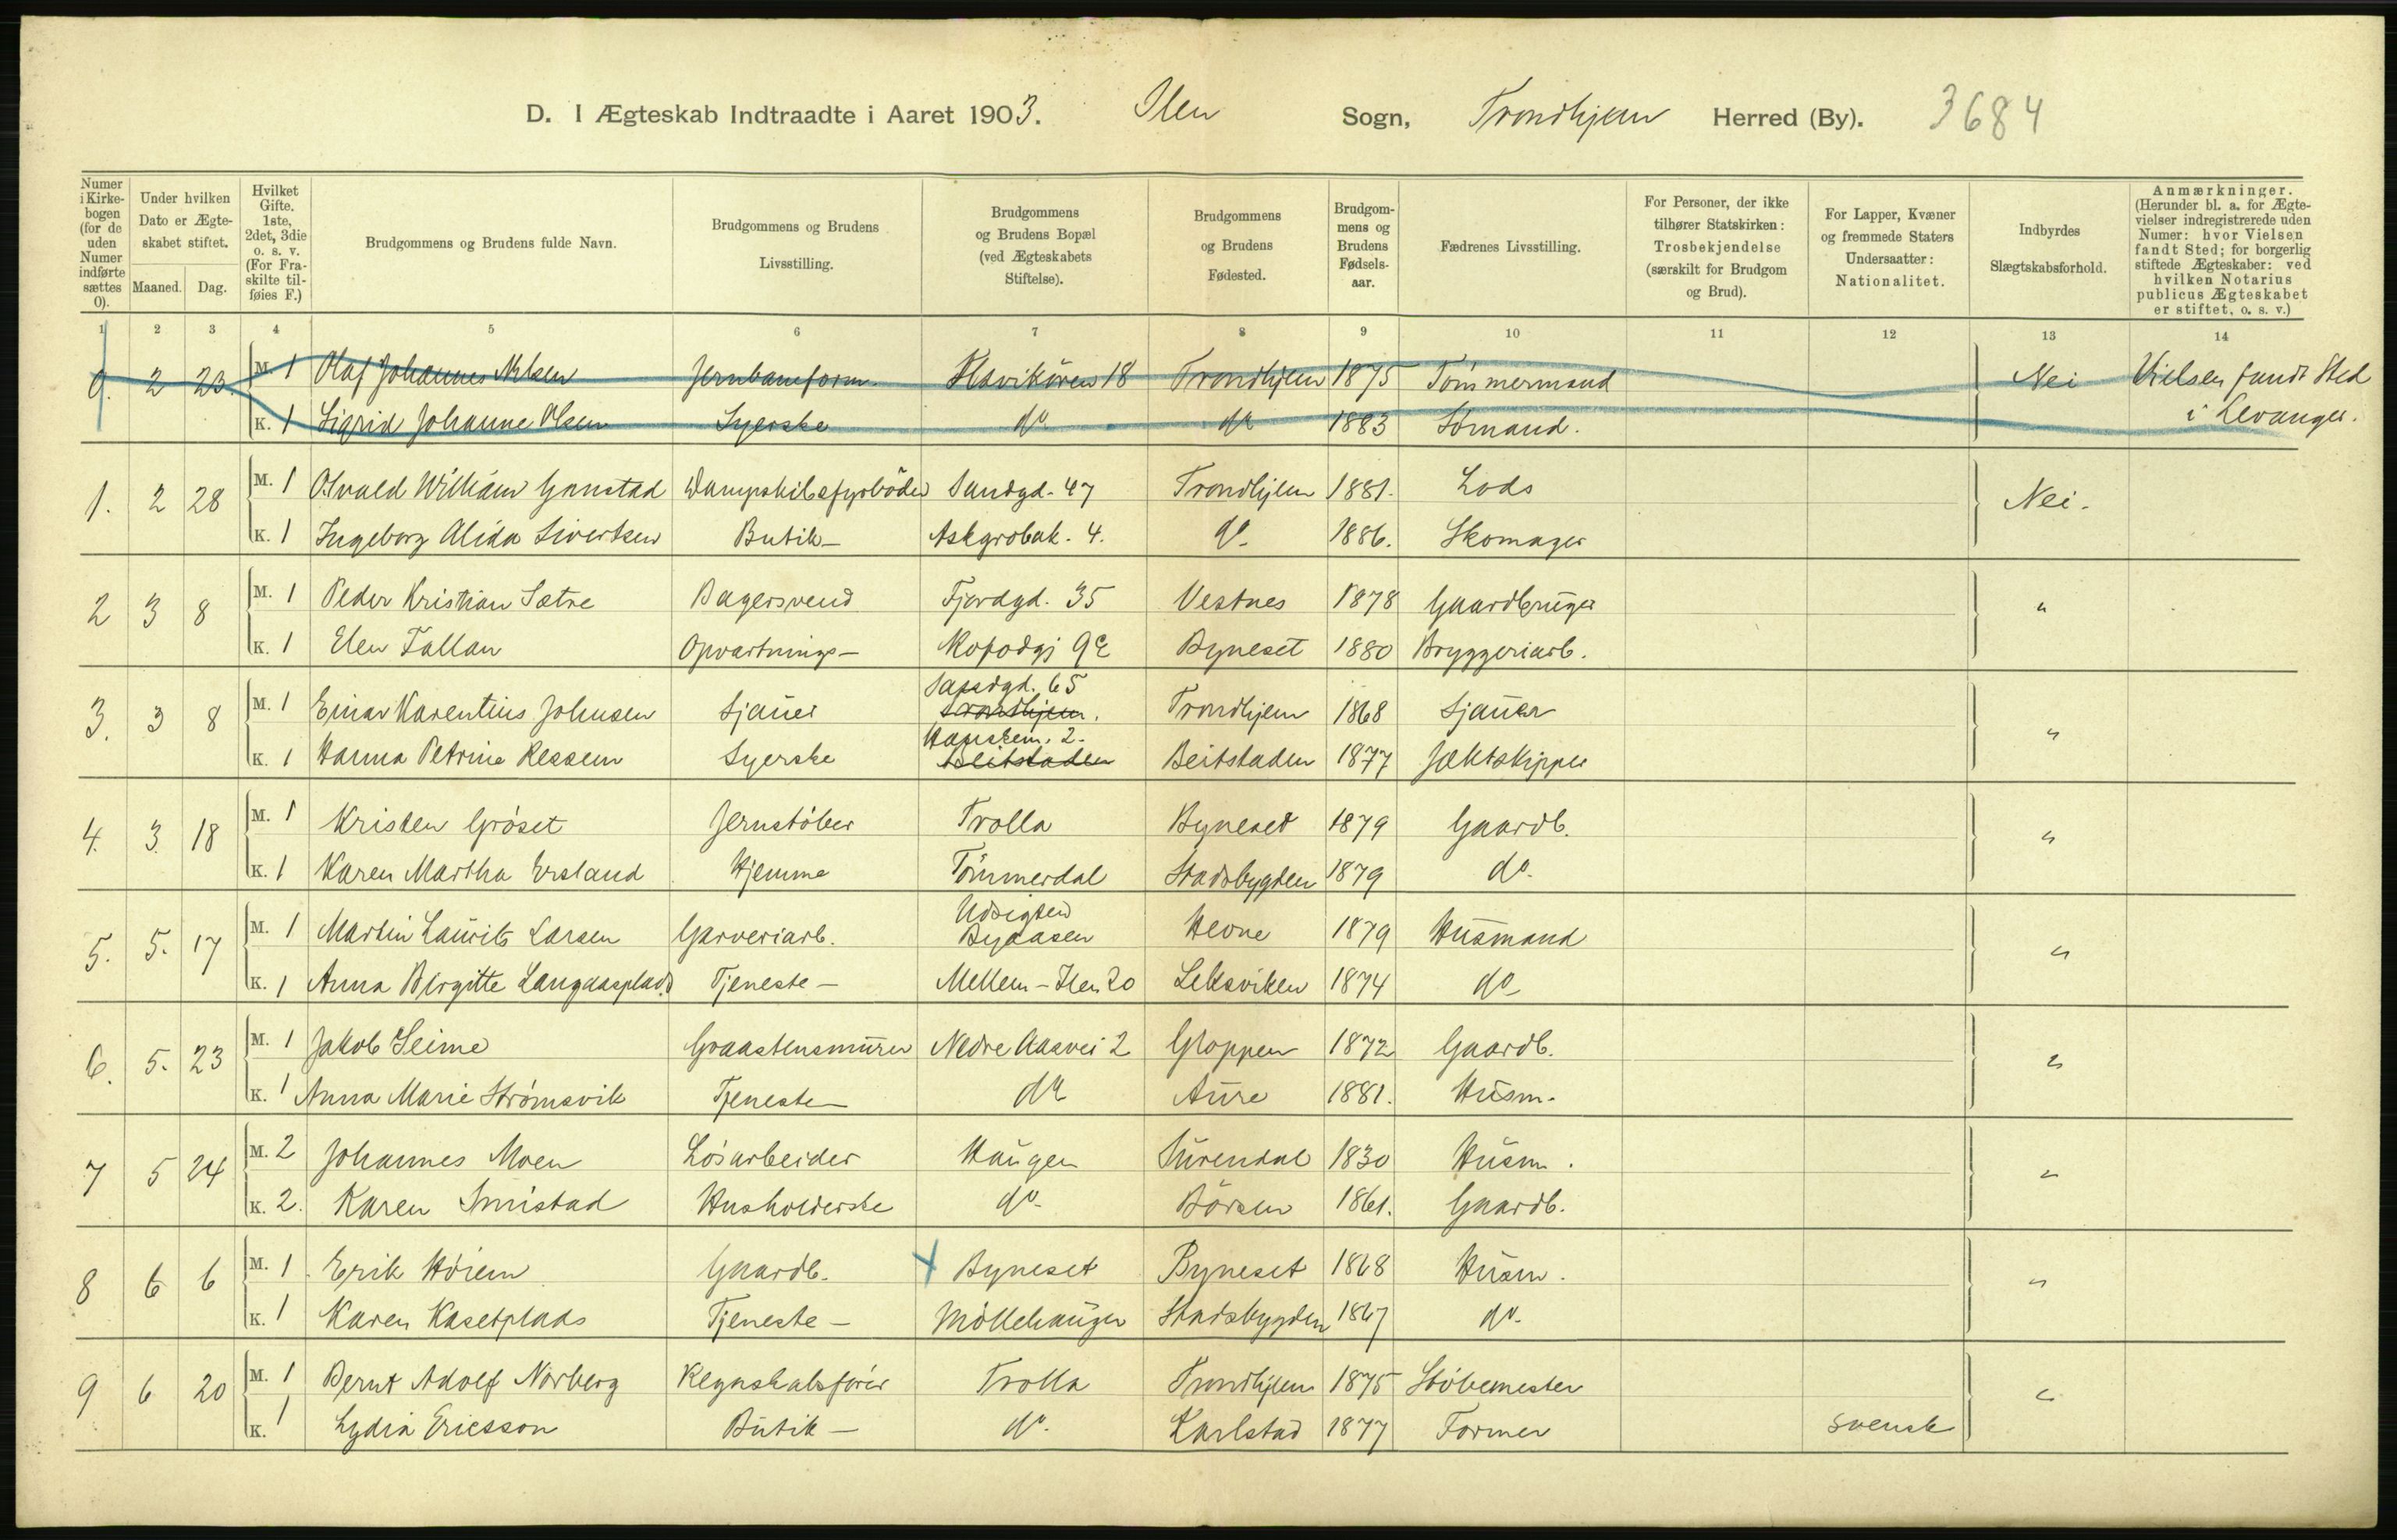 D. I Ægteskab Indtraadte i Aaret 1903. Ilen Sogn, Trondhjem Herred (By). 3684
Numer i Kirkebogen (for de uden Numer indførte sættes 0).
Under hvilken Dato er Ægteskabet stiftet.
Maaned. Dag.
Hvilket Gifte. 1ste, 2det, 3die o. s. v. (For Fraskilte tilføies F.)
Brudgommens og Brudens fulde Navn.
Brudgommens og Brudens Livsstilling.
Brudgommens og Brudens Bopæl (ved Ægteskabets Stiftelse).
Brudgommens og Brudens Fødested.
Brudgommens og Brudens Fødselsaar.
Fædrenes Livsstilling.
For Personer, der ikke tilhører Statskirken: Trosbekjendelse (særskilt for Brudgom og Brud).
For Lapper, Kvæner og fremmede Staters Undersaatter: Nationalitet.
Indbyrdes Slægtskabsforhold.
Anmærkninger. (Herunder bl. a. for Ægtevielser indregistrerede uden Numer: hvor Vielsen fandt Sted; for borgerlig stiftede Ægteskaber: ved hvilken Notarius publicus Ægteskabet er stiftet, o. s. v.)
1 2 3 4 5 6 7 8 9 10 11 12 13 14
0. 2 23. M. 1 Olaf Johannes Jernbaneform. Trondhjem 1875 Tømmermand Nei Vielsen fandt Sted
K. 1 Sigrid Johanne Olsen Syerske do do 1883 Sømand. i Levanger.
1. 2 28 M. 1 Osvald William Dampskibsfyrbøder Sandgd. 47 Trondhjem 1881. Lods Nei.
K. 1 Ingeborg Alida Sivertsen Butik- Askgrobak. 4. do. 1886. Skomager
2 3 8 M. 1 Peder Kristian Sætre Bagersvend Fjordgd. 35 Vestnes 1878 Gaardbruger "
K. 1 Elen Fallan Opvartnings- Byneset 1880 Bryggeriarb.
3. 3 8 M. 1 Einar Karentius Johnsen Sjauer 65 Trondhjem. Trondhjem 1868 Sjauer "
K. 1 Hanna Petrine Ressem Syerske 2. Beitstaden Beitstaden 1877 Jægtskipper
4. 3. 18 M. 1 Kristen Grøset Jernstøber Trolla Byneset 1879 Gaardb. "
K. 1 Karen Martha Ersland Hjemme Tømmerdal Stadsbygden 1879 do.
5. 5. 17 M. 1 Martin Laurits Larsen Garveriarb. Udsigten Byaasen Hevne 1879 Husmand "
K. 1 Anna Birgitte Langaasplads Tjeneste - Mellem-Ilen 20 Leksviken 1874 do
6. 5. 23 M. 1 Jakob Seime Graastensmurer Nedre Aasvei 2 Gloppen 1872 Gaardb. "
K. 1 Anna Marie Strømsvik Tjeneste- do Aure 1881. Husm.
7 5 24 M. 2 Johannes Moen Løsarbeider Haugen Surendal 1830 Husm. "
K. 2. Karen Husholderske do. Børsen 1861. Gaardb.
8 6 6 M. 1 Erik Høiem Gaardb. Byneset Byneset 1868 Husm. "
K. 1 Karen Kasetplads Tjeneste - Møllehaugen Stadsbygden 1867 do.
9 6 20 M. 1 Bernt Adolf Norberg Regnskabsfører Trolla Trondhjem 1875 Støbemester "
K. 1 Lydia Ericsson Butik - do. Karlstad 1877 Former svensk